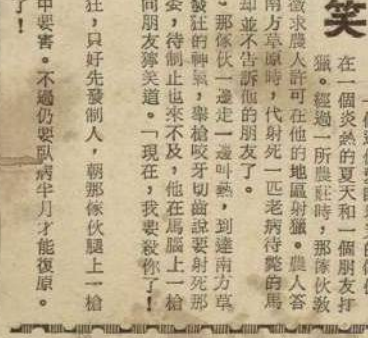 笑
在一個炎熱的夏天和一個朋友打
獵。經過一所農莊時,那傢伙敎
徵求農人許可在他的地區射獵。農人答
南方草原時,代射死一匹老病待斃的馬
却並不告訴他的朋友了。
。那傢伙一邊走一邊叫熱,到達南方草
發狂的神氣,舉槍咬牙切齒說要射死那
委,待制止也來不及,他在馬腦上一槍
向朋友獰笑道。「現在,我要殺你了!
狂,只好先發制人,朝那傢伙腿上一槍
中要害。不過仍要臥病半月才能復原。
了!